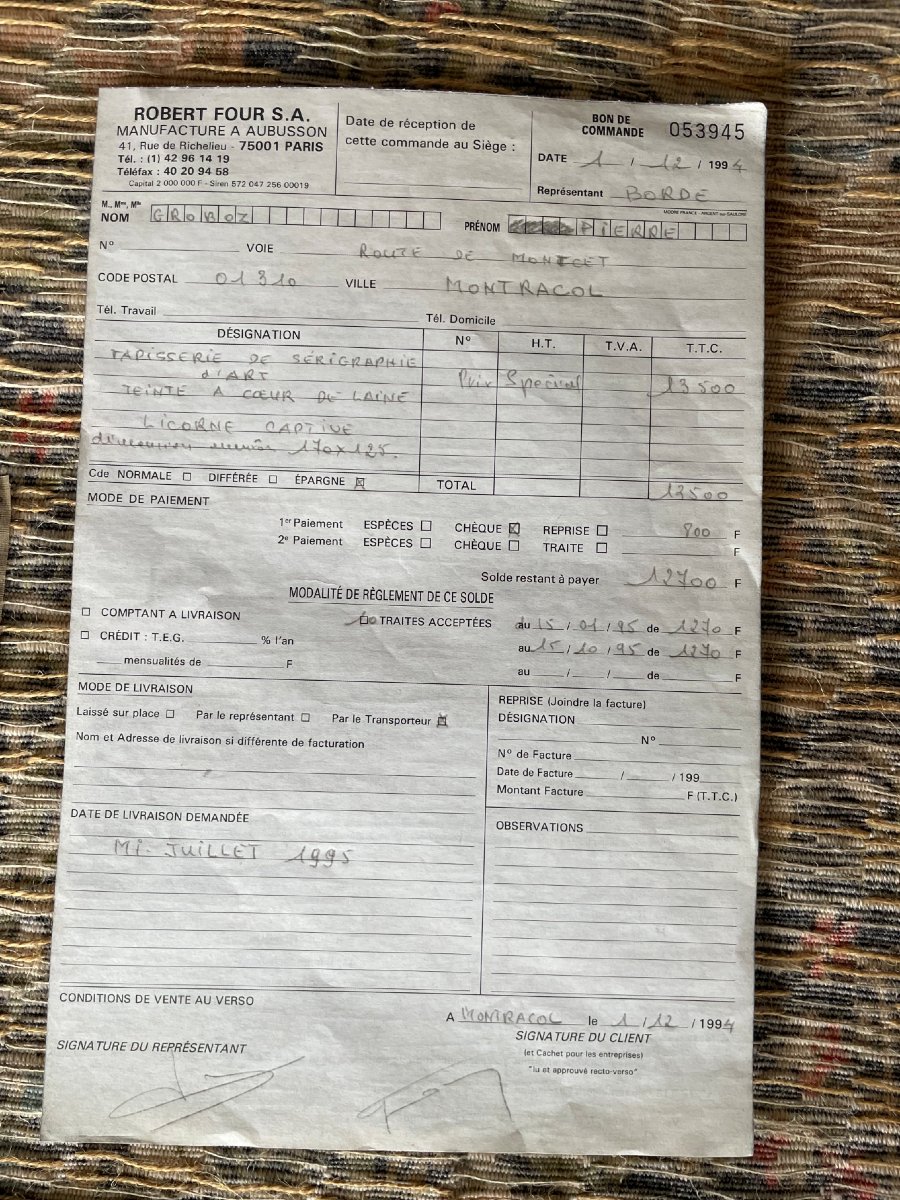 ROBERT FOUR S.A.
MANUFACTURE A AUBUSSON
41, Rue de Richelieu - 75001 PARIS
Tél. : (1) 42 96 14 19
Téléfax : 40 20 94 58
Capital 2 000 000 F - Siren 572 047 256 00019
Date de réception de
cette commande au Siège :
BON DE
COMMANDE 053945
DATE 1 / 12 / 1994
Représentant BORDE
M., Mme, Mlle
NOM GROBOZ
PRÉNOM PIERRE
N° VOIE ROUTE DE MONTCET
CODE POSTAL 01310 VILLE MONTRACOL
Tél. Travail Tél. Domicile
DÉSIGNATION N° H.T. T.V.A. T.T.C.
TAPISSERIE DE SÉRIGRAPHIE
d'ART Prix Special 13500
TEINTE A CŒUR DE LAINE
LICORNE CAPTIVE
dimension 170x125.
Cde NORMALE DIFFÉRÉE ÉPARGNE TOTAL 13500
MODE DE PAIEMENT
1er Paiement ESPÈCES CHÈQUE REPRISE 800 F
2e Paiement ESPÈCES CHÈQUE TRAITE F
Solde restant à payer 12700 F
MODALITÉ DE RÈGLEMENT DE CE SOLDE
COMPTANT A LIVRAISON 10 TRAITES ACCEPTÉES du 15 / 01 / 95 de 1270 F
CRÉDIT : T.E.G. % l'an au 15 / 10 / 95 de 1270 F
mensualités de F au / / de F
MODE DE LIVRAISON
Laissé sur place Par le représentant Par le Transporteur
Nom et Adresse de livraison si différente de facturation
REPRISE (Joindre la facture)
DÉSIGNATION
N°
N° de Facture
Date de Facture / / 199
Montant Facture F (T.T.C.)
DATE DE LIVRAISON DEMANDÉE
MI-JUILLET 1995
OBSERVATIONS
CONDITIONS DE VENTE AU VERSO
A MONTRACOL le 1 / 12 / 1994
SIGNATURE DU REPRÉSENTANT
SIGNATURE DU CLIENT
(et Cachet pour les entreprises)
"lu et approuvé recto-verso"